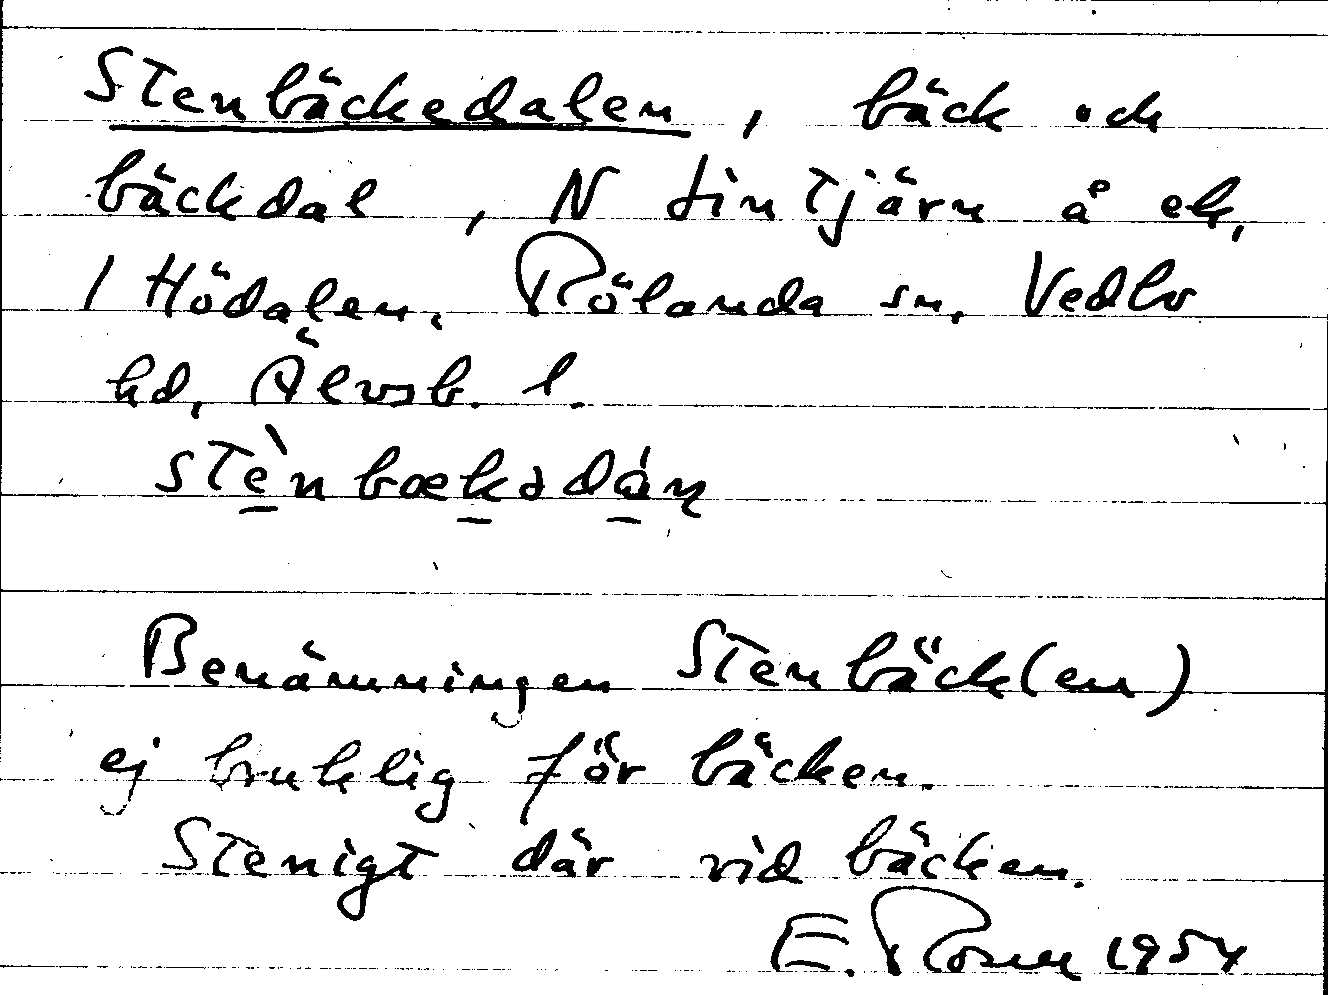 Stenbäckedalen, bäck och
bäckdal, N Lintjärn å ek,
i Hödalen. Rölanda sn, Vedbo
hd, Älvsb. l.
stènbækədáṇ
Benämningen Stenbäck(en)
ej bruklig för bäcken.
Stenigt där vid bäcken.
E. Rosell 1954